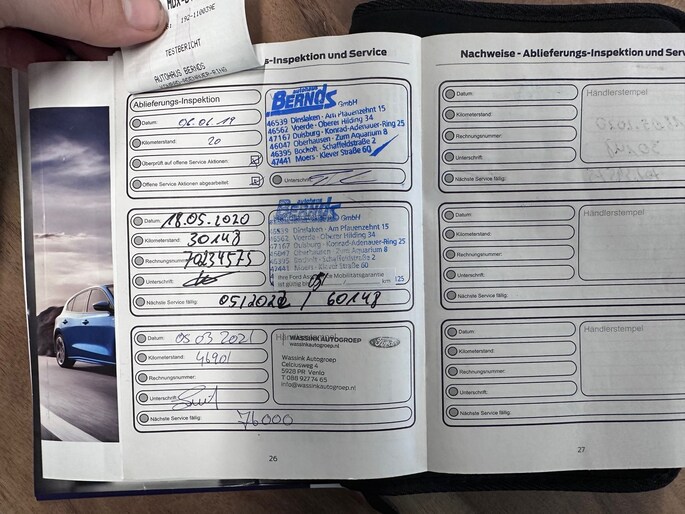 192-110039E
TESTBERICHT
AUTOHAUS BERNDS
s-Inspektion und Service
Ablieferungs-Inspektion
Datum: 06.02.19
Kilometerstand: 20
Überprüft auf offene Service Aktionen:
Offene Service Aktionen abgearbeitet:
autohaus
BERNDS GmbH
46539 Dinslaken · Am Pfauenzehnt 15
46562 Voerde · Oberer Hilding 34
47167 Duisburg · Konrad-Adenauer-Ring 25
46047 Oberhausen · Zum Aquarium 8
46395 Bocholt · Schaffeldstraße 2
47441 Moers · Klever Straße 60
Unterschrift:
Datum: 18.05.2020
Kilometerstand: 30148
Rechnungsnummer: 70234575
Unterschrift:
Nächste Service fällig: 05/2022 / 60148
BERNDS GmbH
46539 Dinslaken · Am Pfauenzehnt 15
46562 Voerde · Oberer Hilding 34
47167 Duisburg · Konrad-Adenauer-Ring 25
46047 Oberhausen · Zum Aquarium 8
46395 Bocholt · Schaffeldstraße 2
47441 Moers · Klever Straße 60
Ihre Ford Assistance Mobilitätsgarantie
km
Datum: 05 03 2021
Kilometerstand: 46901
Rechnungsnummer:
Unterschrift:
Nächste Service fällig: 76000
WASSINK AUTOGROEP
wassinkautogroep.nl
Wassink Autogroep
Celsiusweg 4
5928 PR Venlo
T 088 927 74 65
info@wassinkautogroep.nl
Ford
26
Nachweise - Ablieferungs-Inspektion und Serv
Datum:
Kilometerstand:
Rechnungsnummer:
Unterschrift:
Nächste Service fällig:
Händlerstempel
Datum:
Kilometerstand:
Rechnungsnummer:
Unterschrift:
Nächste Service fällig:
Händlerstempel
Datum:
Kilometerstand:
Rechnungsnummer:
Unterschrift:
Nächste Service fällig:
Händlerstempel
27